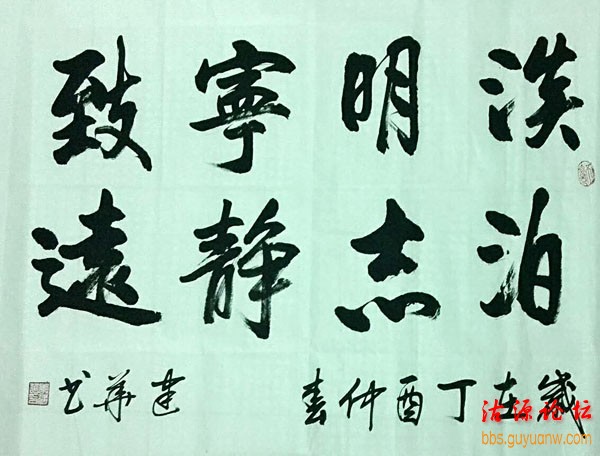 淡泊
明志
寧静
致遠
歲在丁酉仲春
建華书
沽源论坛
bbs.guyuanw.com